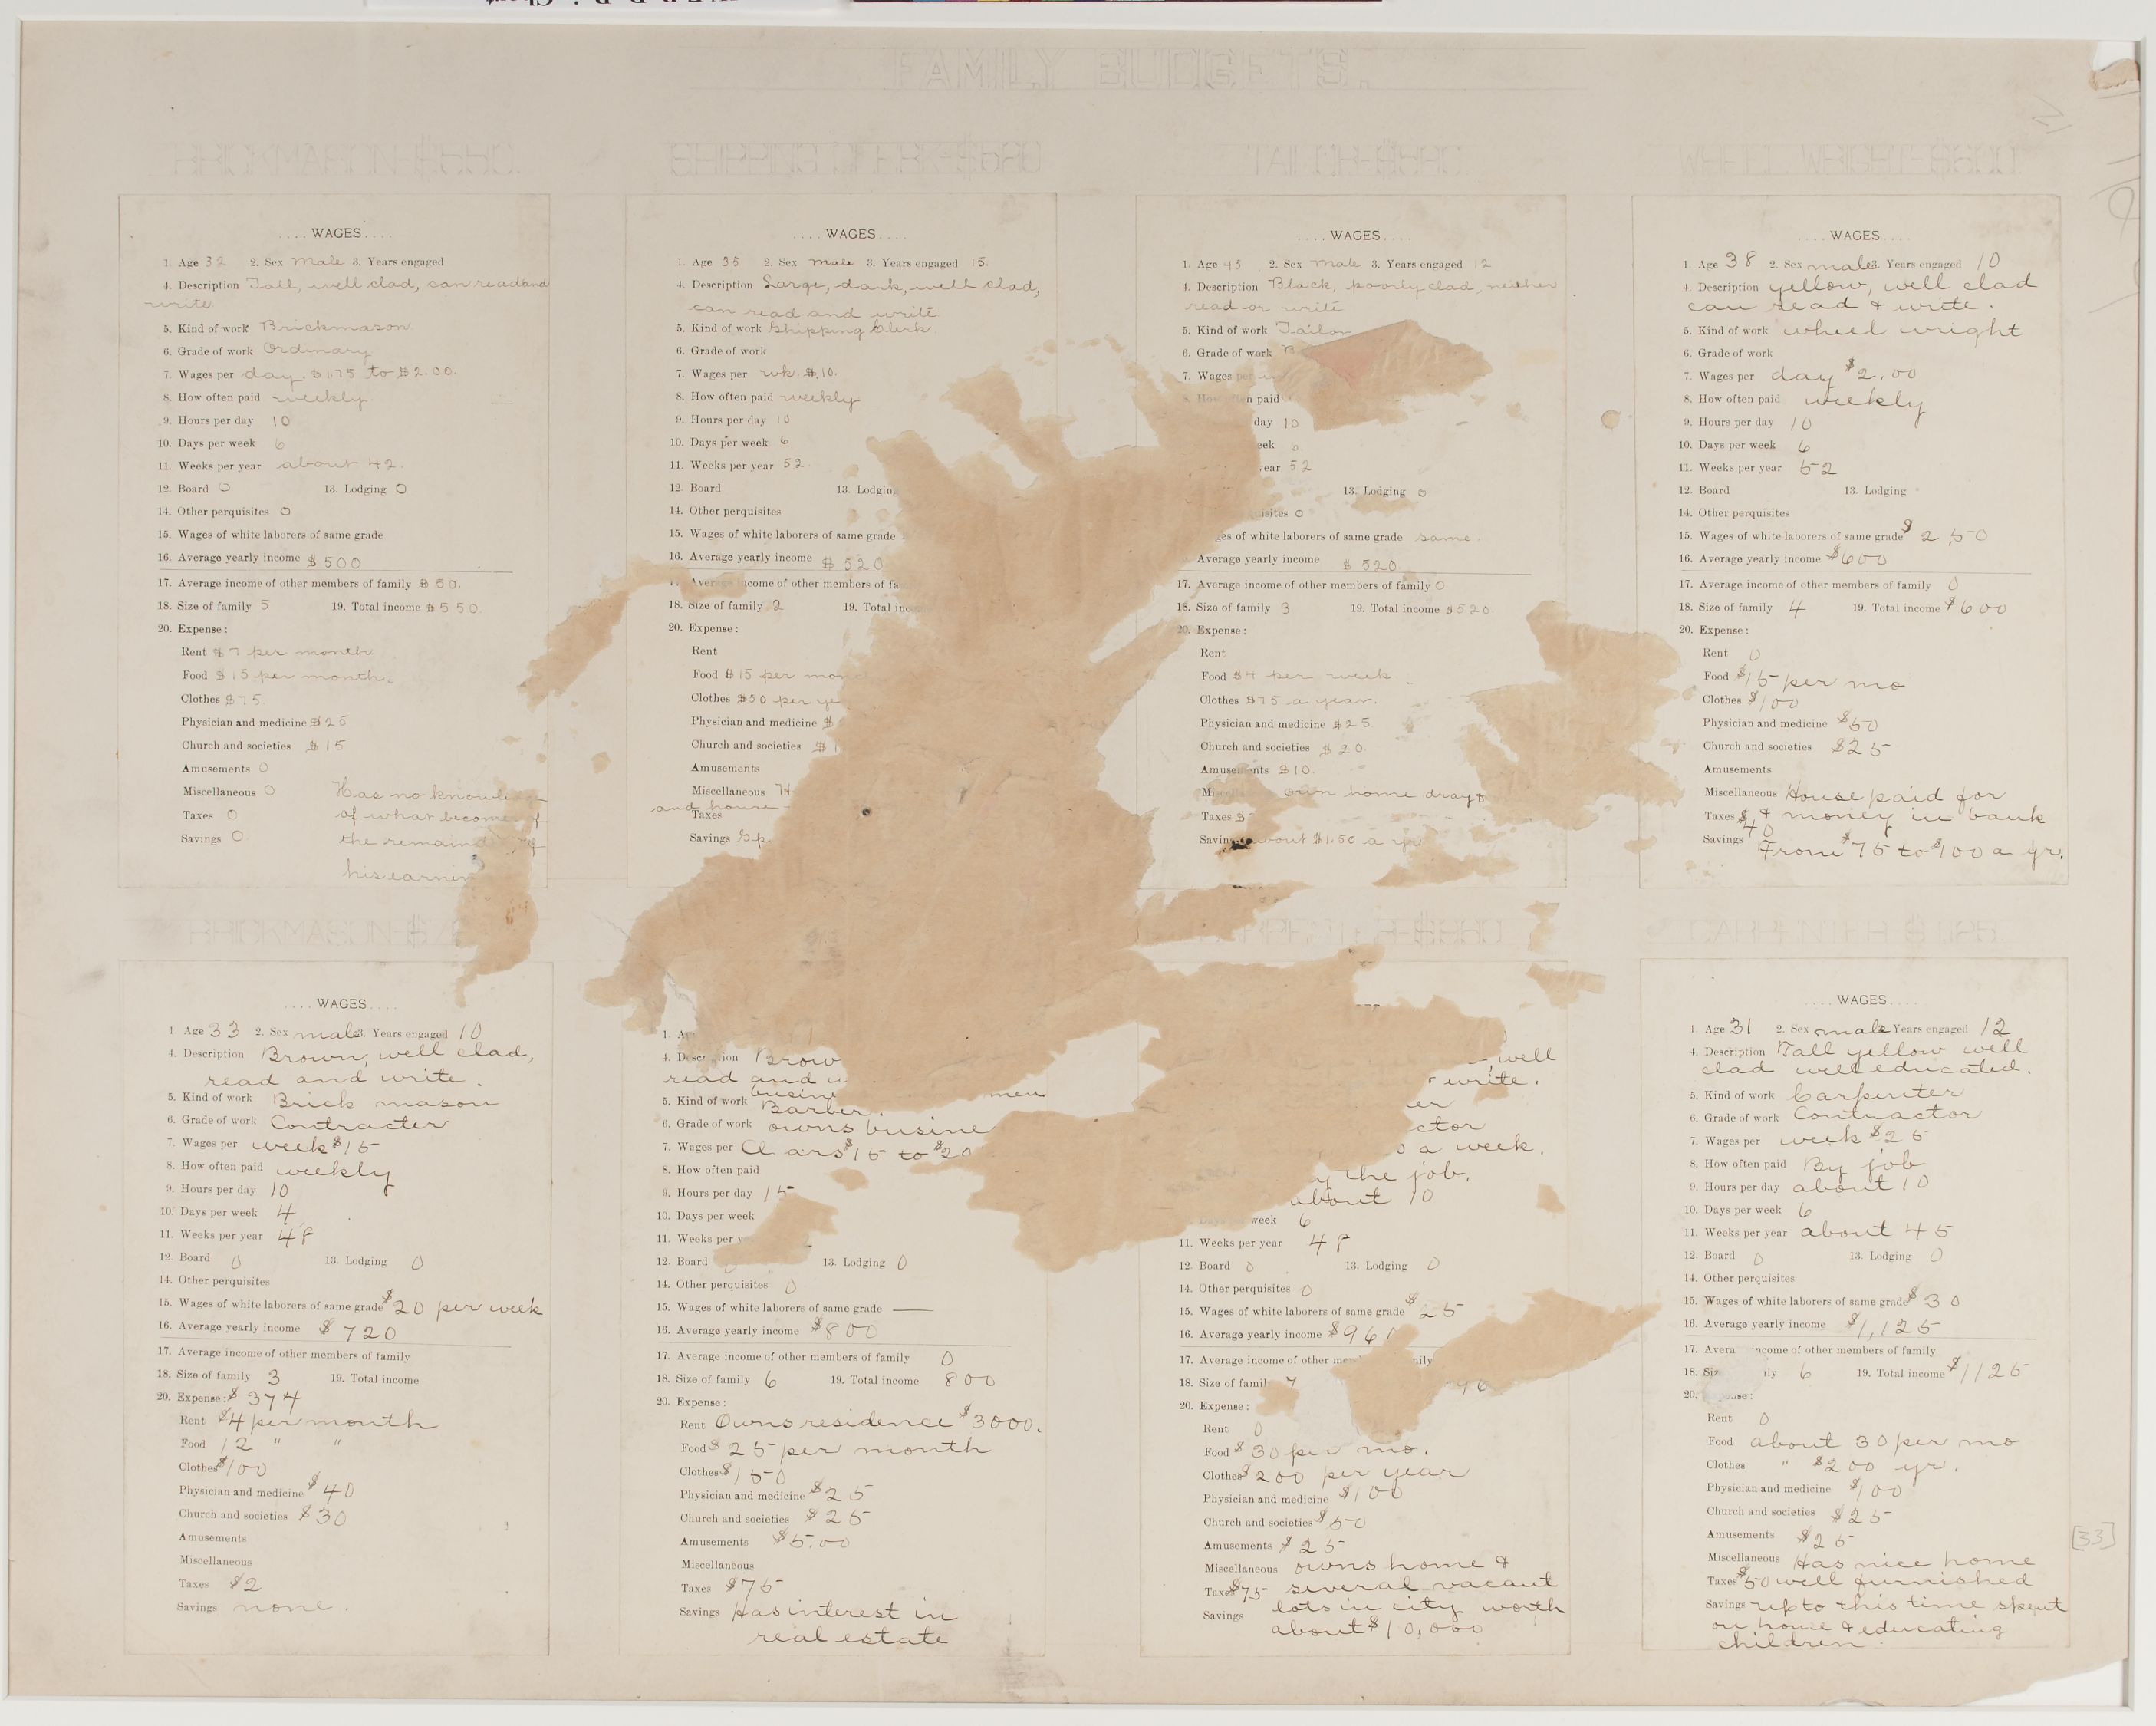 FAMILY BUDGETS.
BRICKMASON-$550.
SHIPPING CLERK-$520
TAILOR-
WHEEL WRIGHT-$600
.... WAGES ....
1. Age 32 2. Sex Male 3. Years engaged
4. Description Tall, well clad, can read and
write
5. Kind of work Brickmason.
6. Grade of work Ordinary
7. Wages per day. $1.75 to $2.00.
8. How often paid weekly
9. Hours per day 10
10. Days per week 6
11. Weeks per year about 42.
12. Board 0 13. Lodging 0
14. Other perquisites 0
15. Wages of white laborers of same grade
16. Average yearly income $500
17. Average income of other members of family $50.
18. Size of family 5 19. Total income $550
20. Expense:
Rent $7 per month
Food $15 per month.
Clothes $75.
Physician and medicine $25
Church and societies $15
Amusements 0
Miscellaneous 0 Has no
Taxes 0 of what becomes of
Savings 0 the of
his
.... WAGES ....
1. Age 35 2. Sex Male 3. Years engaged 15.
4. Description Large, dark, well clad,
can read and write
5. Kind of work Shipping Clerk
6. Grade of work
7. Wages per wk. $10.
8. How often paid weekly
9. Hours per day 10
10. Days per week 6
11. Weeks per year 52
12. Board 13.
14. Other perquisites
15. Wages of white laborers of same grade
16. Average yearly income $520
Average income of other members of
18. Size of family 2 19. Total
20. Expense:
Rent
Food $15 per
Clothes $50 per
Physician and medicine $
Church and societies $
Amusements
Miscellaneous
and house
Taxes
Savings
.... WAGES ....
1. Age 45 2. Sex Male 3. Years engaged 12
4. Description Black, poorly clad, neither
read or write
5. Kind of work Tailor
6. Grade of work
7. Wages per
paid
day 10
6
52
13. Lodging 0
0
of white laborers of same grade same.
Average yearly income $520
17. Average income of other members of family 0
18. Size of family 3 19. Total income $520
20. Expense:
Rent
Food $4 per week.
Clothes $75 a year.
Physician and medicine $25
Church and societies $20.
Amusements $10.
own home
Taxes $
Savings about $1.50 a
.... WAGES ....
1. Age 38 2. Sex male 3. Years engaged 10
4. Description yellow, well clad
can read & write.
5. Kind of work wheel wright
6. Grade of work
7. Wages per day $2.00
8. How often paid weekly
9. Hours per day 10
10. Days per week 6
11. Weeks per year 52
12. Board 13. Lodging
14. Other perquisites
15. Wages of white laborers of same grade $2.50
16. Average yearly income $600
17. Average income of other members of family 0
18. Size of family 4 19. Total income $600
20. Expense:
Rent 0
Food $15 per mo
Clothes $100
Physician and medicine $50
Church and societies $25
Amusements
Miscellaneous House paid for
Taxes $40 & money in bank
Savings From $75 to $100 a yr.
BRICKMASON-$
CARPENTER-
.... WAGES ....
1. Age 33 2. Sex male 3. Years engaged 10
4. Description Brown, well clad,
read and write.
5. Kind of work Brick mason
6. Grade of work Contracter
7. Wages per week $15
8. How often paid weekly
9. Hours per day 10
10. Days per week 4
11. Weeks per year 48
12. Board 0 13. Lodging 0
14. Other perquisites
15. Wages of white laborers of same grade $20 per week
16. Average yearly income $720
17. Average income of other members of family
18. Size of family 3 19. Total income
20. Expense: $374
Rent $4 per month
Food 12 " "
Clothes $100
Physician and medicine $40
Church and societies $30
Amusements
Miscellaneous
Taxes $2
Savings none.
1.
4. Description
read and
men
5. Kind of work Barber.
6. Grade of work owns
7. Wages per Clears $15 to $20
8. How often paid
9. Hours per day 15
10. Days per week
11. Weeks per
12. Board 0 13. Lodging 0
14. Other perquisites 0
15. Wages of white laborers of same grade —
16. Average yearly income $800
17. Average income of other members of family 0
18. Size of family 6 19. Total income 800
20. Expense:
Rent Owns residence $3000.
Food $25 per month
Clothes $150
Physician and medicine $25
Church and societies $25
Amusements $5.00
Miscellaneous
Taxes $75
Savings Has interest in
real estate
well
write.
a week.
the job.
about 10
week 6
11. Weeks per year 48
12. Board 0 13. Lodging 0
14. Other perquisites 0
15. Wages of white laborers of same grade $25
16. Average yearly income $960
17. Average income of other
18. Size of family 7
20. Expense:
Rent 0
Food $30 per mo.
Clothes $200 per year
Physician and medicine $100
Church and societies $50
Amusements $25
Miscellaneous owns home &
Taxes $75 several vacant
Savings lots in city worth
about $10,000
.... WAGES ....
1. Age 31 2. Sex male Years engaged 12
4. Description Tall yellow well
clad well educated.
5. Kind of work Carpenter
6. Grade of work Contractor
7. Wages per week $25
8. How often paid By job
9. Hours per day about 10
10. Days per week 6
11. Weeks per year about 45
12. Board 0 13. Lodging 0
14. Other perquisites
15. Wages of white laborers of same grade $30
16. Average yearly income $1,125
17. income of other members of family
18. 6 19. Total income $1125
20.
Rent 0
Food about 30 per mo
Clothes " $200 yr.
Physician and medicine $100
Church and societies $25
Amusements $25
Miscellaneous Has nice home
Taxes $50 well furnished
Savings up to this time spent
on home & educating
children.
[33]